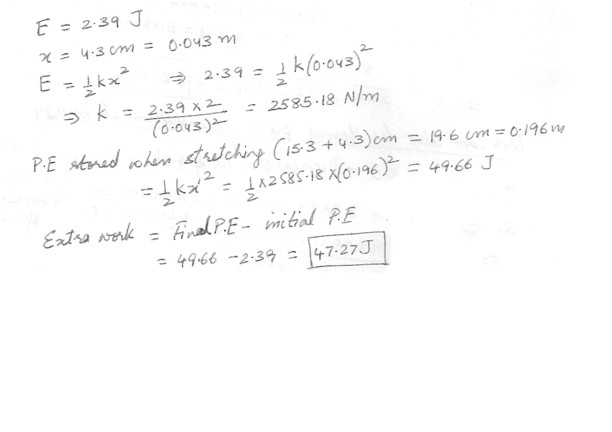 E = 2.39 J
x = 4.3 cm = 0.043 m
E = ½kx² ⇒ 2.39 = ½k(0.043)²
⇒ k = (2.39 × 2)/(0.043)² = 2585.18 N/m
P.E stored when stretching (15.3 + 4.3) cm = 19.6 cm = 0.196 m
= ½kx'² = ½ × 2585.18 × (0.196)² = 49.66 J
Extra work = Final P.E - initial P.E
= 49.66 - 2.39 = 47.27 J